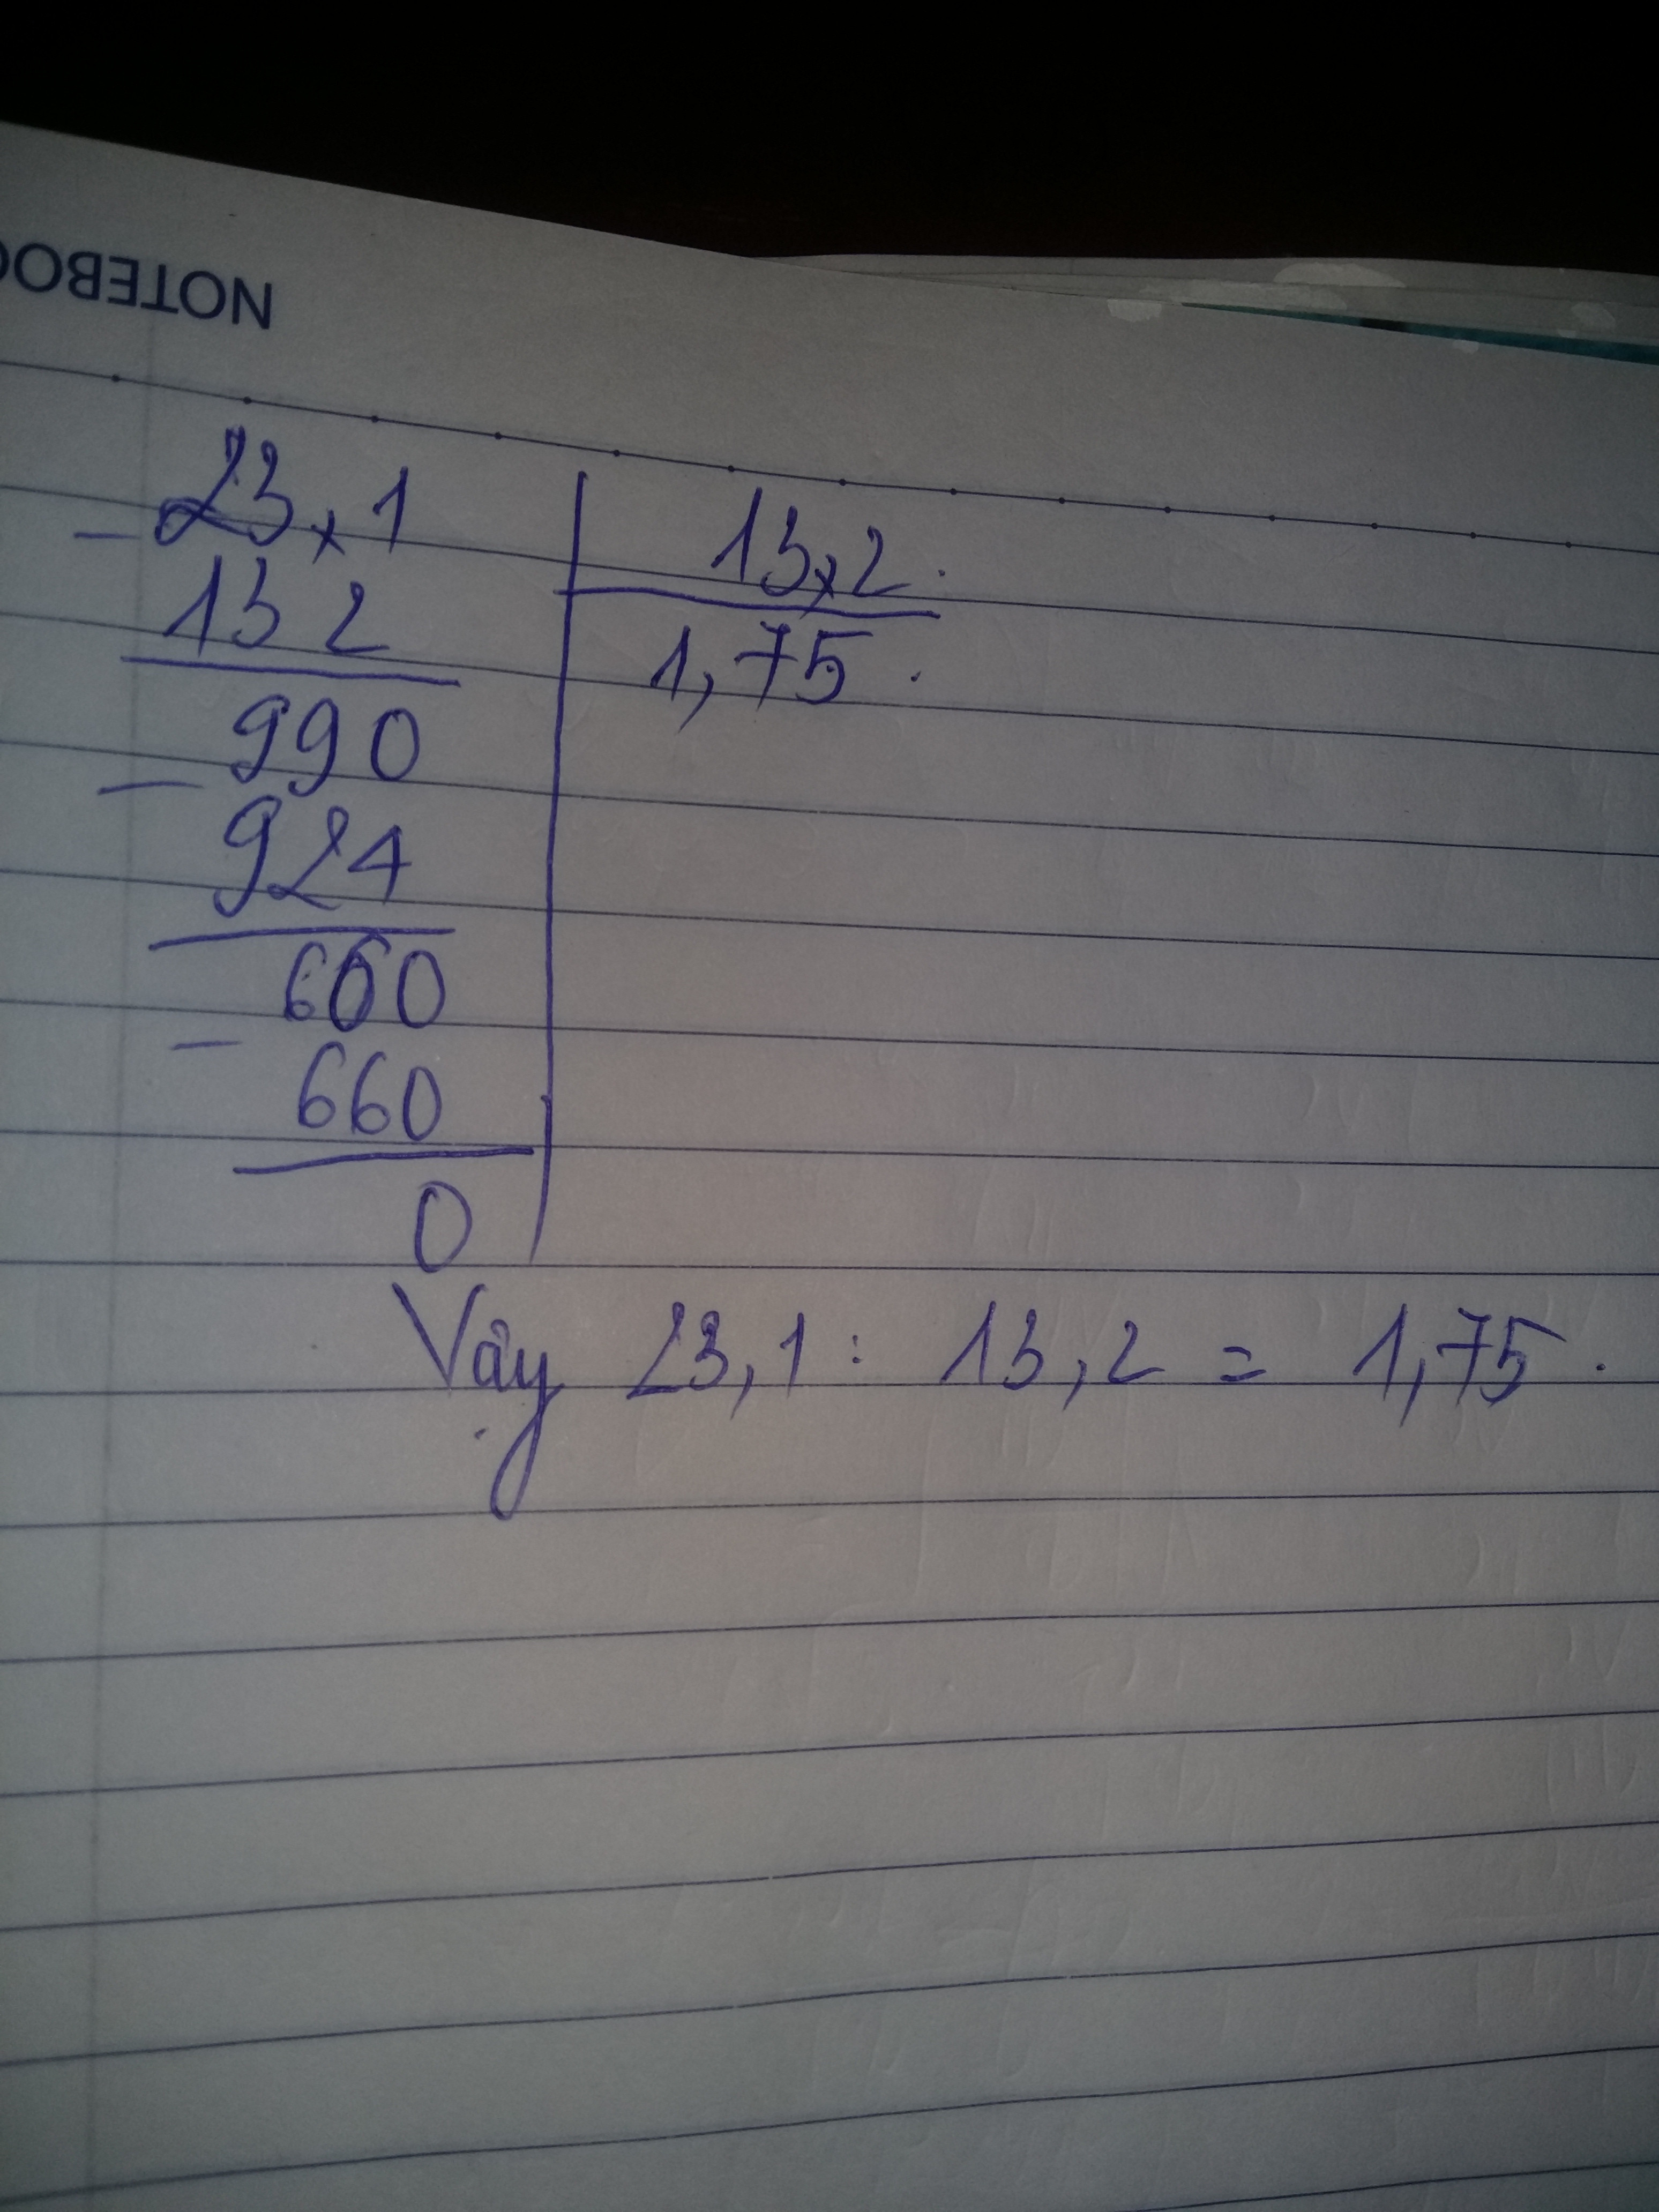 NOTEBOO
23,1 13,2.
132 1,75.
990
924
660
660
0
Vậy 23,1 : 13,2 = 1,75.